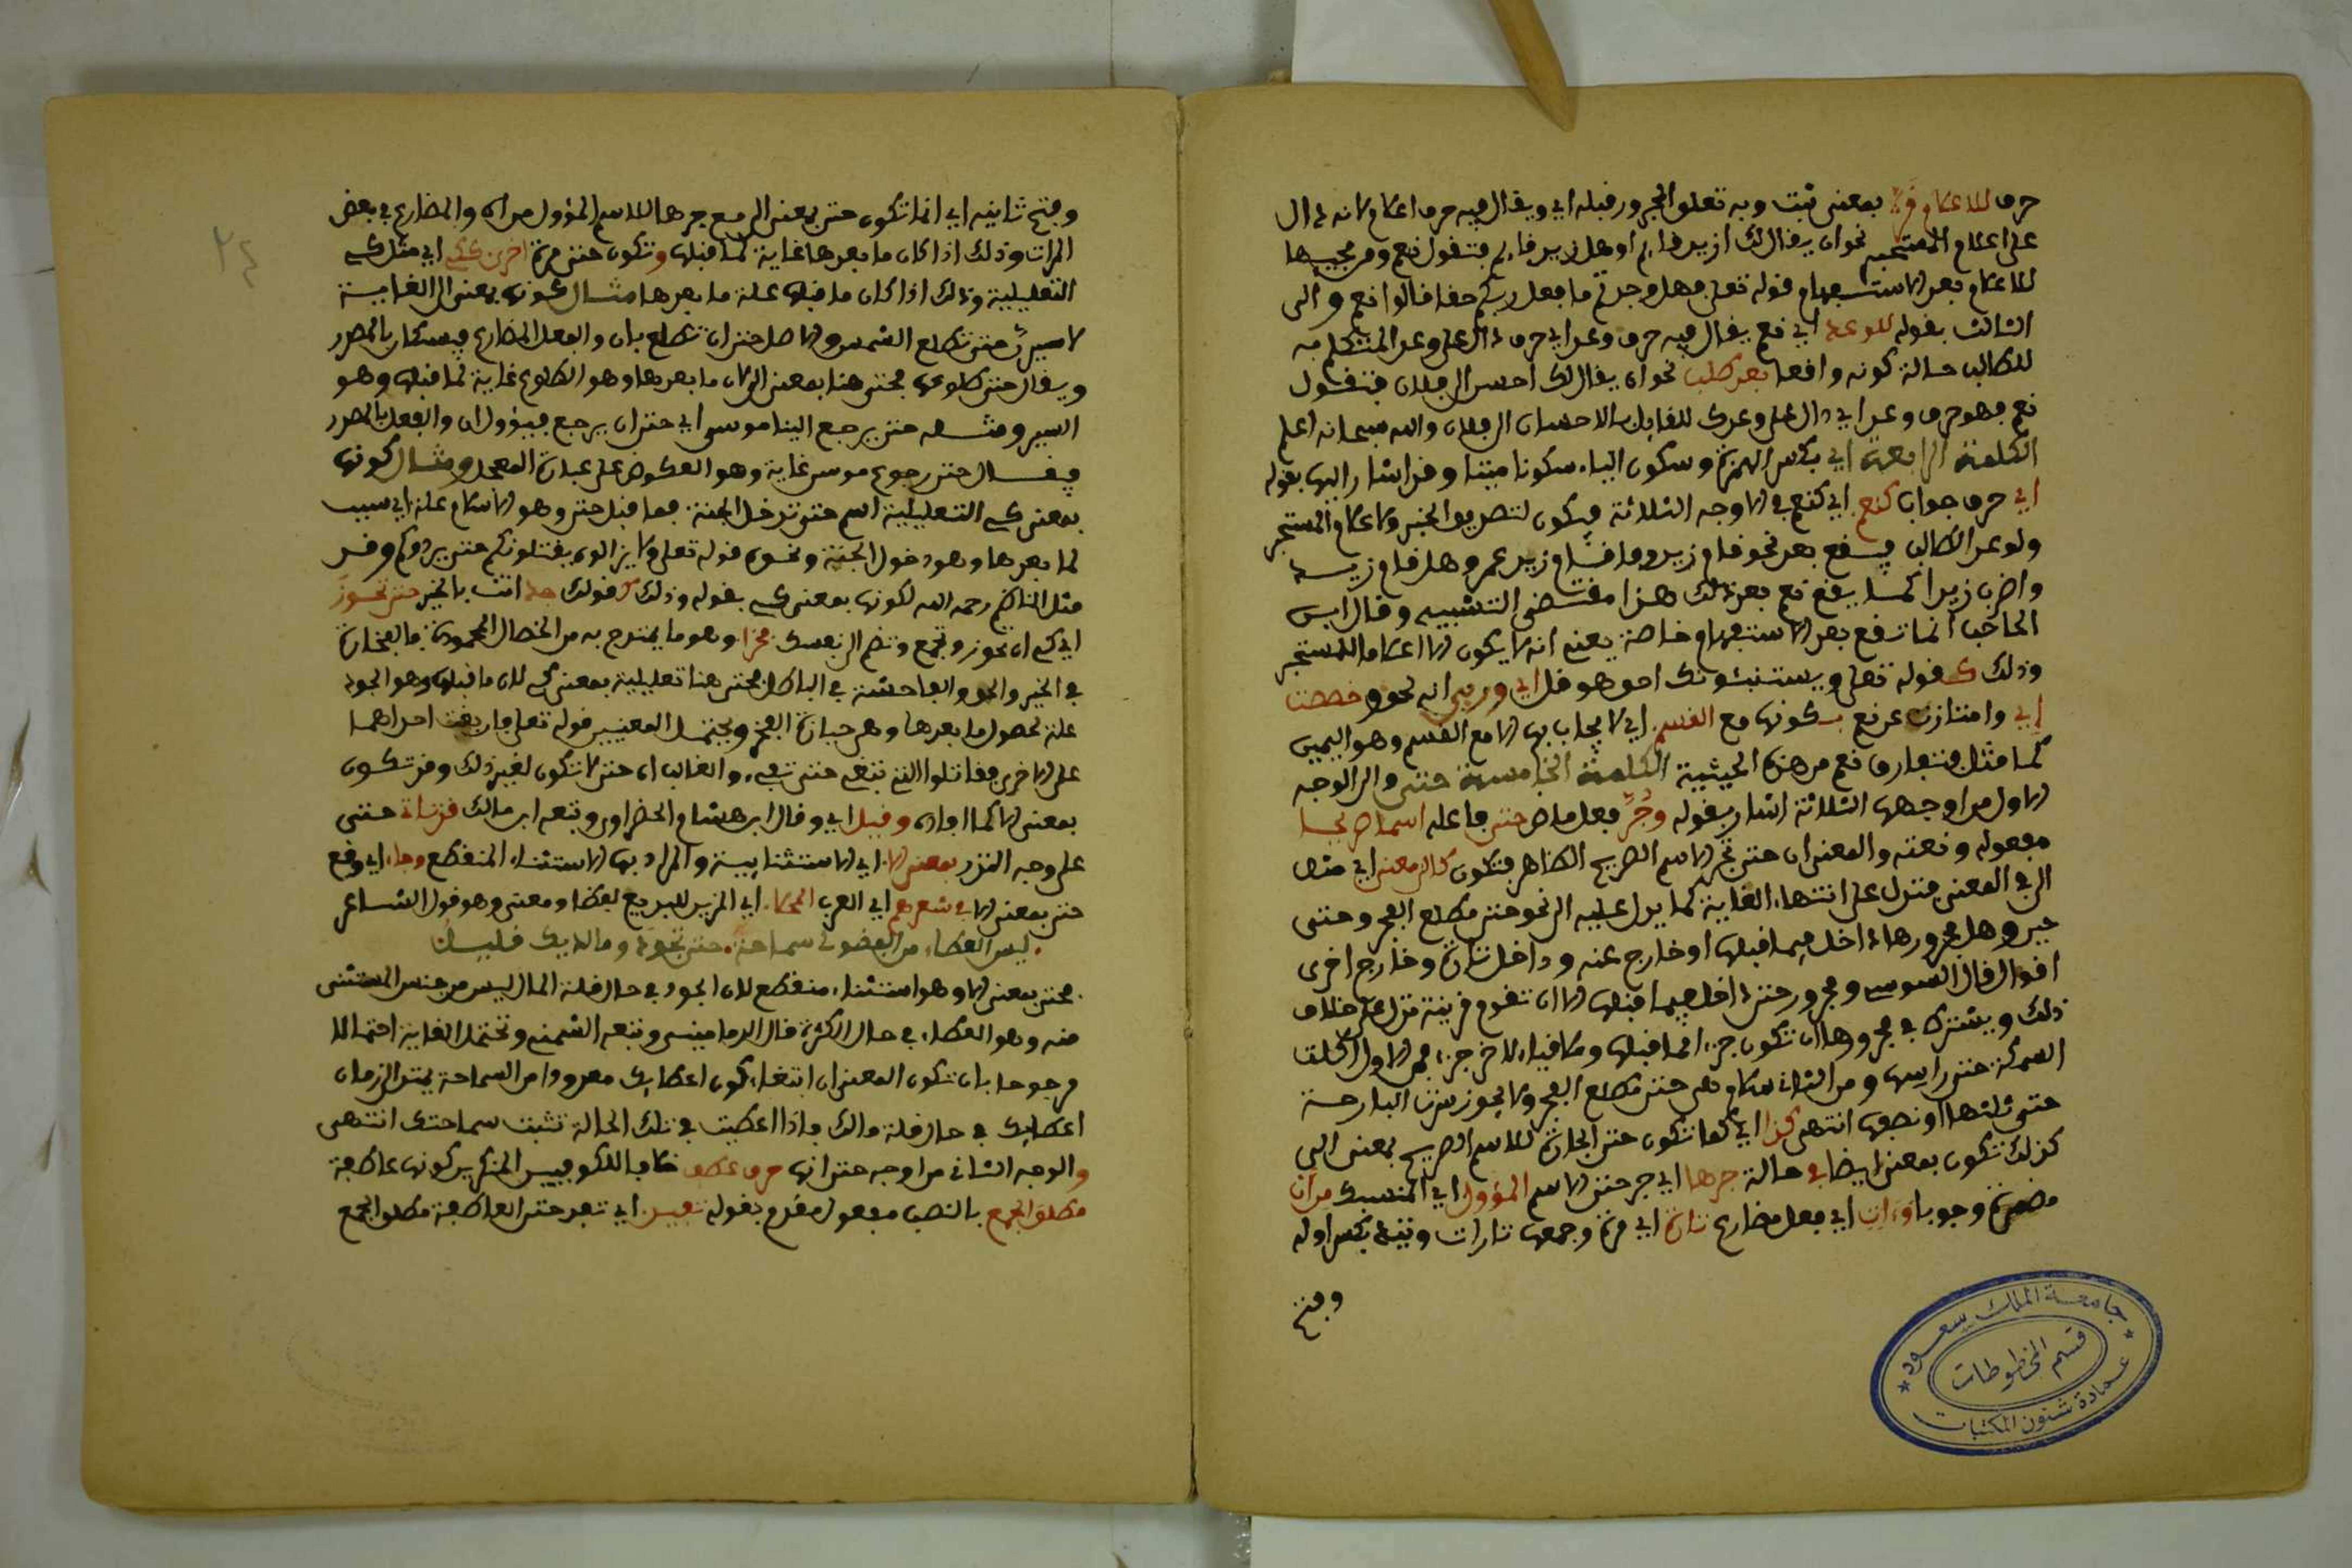 حرف للاعلام قرا بمعنى ثبت وبه تعلق المجرور قبله اي ويقال فيه حرف اعلام لانه دال
على اعلام المستخبر نحو ان يقال لك ازيد قايم او هل زيد قايم فتقول نعم ومن مجيبها
للاعلام بعد الاستفهام قوله تعلى فهل وجدتم ما وعد ربكم حقا قالوا نعم والى
الثالث بقوله للوعد اي نعم يقال فيه حرف وعد اي حرف دال على وعد المتكلم به
للطالب حالة كونه واقعا بعد طلب نحو ان يقال لك احسن الى فلان فتقول
نعم فهو حرف وعد اي دال على وعدك للقايل بالاحسان الى فلان والله سبحانه اعلم
الكلمة الرابعة اي بكسر الهمزة وسكون الياء سكونا ميتا وقد اشار اليها بقوله
اي حرف جواب كنعم اي كنعم في الاوجه الثلاثة فيكون لتصديق الخبر ولاعلام المستخبر
ولوعد الطالب فيقع بعد نحو قام زيد وما قام زيد عمرو وهل قام زيد
واضرب زيدا كما يقع نعم بعد ذلك هذا مقتضى التشبيه وقال ابن
الحاجب انما تقع بعد الاستفهام خاصة يعني انه لا يكون الا اعلاما للمستخبر
وذلك كقوله تعلى ويستنبئونك احق هو قل اي وربي انه لحق وخصصت
اي وامتازت عن نعم بكونها مع القسم اي لا يجاب بها الا مع القسم وهو اليمين
كما مثل فتفارق نعم من هذه الحيثية الكلمة الخامسة حتى والى الوجه
الاول من اوجهها الثلاثة اشار بقوله وجر فعل ماض حتى فاعله اسما صريحا
مفعوله ونعته والمعنى ان حتى تجر الاسم الصريح الظاهر فتكون كالى معنى اي مثل
الى في المعنى فتدل على انتهاء الغاية كما يدل عليه الى نحو حتى مطلع الفجر وحتى
حين وهل مجرورها داخل فيما قبلها او خارج عنه وداخل تارة وخارج اخرى
اقوال قال السوسي ومجرور حتى داخل فيما قبلها الا ان تقوم قرينة تدل على خلاف
ذلك ويشترط في مجرورها ان تكون جزءا لما قبلها وملاقيا لاخر جزء فمن الاول اكلت
السمكة حتى راسها ومن الثاني سلام هي حتى مطلع الفجر ولا يجوز سرت البارحة
حتى ثلثها او نصفها انتهى كذا اي كما تكون حتى الجارة للاسم الصريح بمعنى الى
كذلك تكون بمعنى ايضا في حالة جرها اي جر حتى الاسم المؤول اي المنسبك من ان
مضمرة وجوبا وات اي فعل مضارع تارة اي مرة وجمعها تارات وتيرة بكسر اوله
وفتح
جامعة الملك سعود
قسم المخطوطات
عمادة شئون المكتبات
٢٤
وفتح ثانيه اي انما تكون حتى بمعنى الى مع جرها للاسم المؤول من ان والمضارع في بعض
المرات وذلك اذا كان ما بعدها غاية لما قبلها وتكون حتى مرة اخرى ككي اي مثل كي
التعليلية وذلك اذا كان ما قبلها علة ما بعدها مثال كونها بمعنى الى الغايية
لاسيرن حتى تطلع الشمس والاصل حتى ان تطلع بان والفعل المضارع فيسبكان بالمصدر
ويقال حتى طلوعها فحتى هنا بمعنى الى لان ما بعدها وهو الطلوع غاية لما قبلها وهو
السير ومثله حتى يرجع الينا موسى اي حتى ان يرجع فيؤول ان والفعل بالمصدر
فيقال حتى رجوع موسى غاية وهو العكوف على عبادة العجل ومثال كونها
بمعنى كي التعليلية اسلم حتى تدخل الجنة فما قبل حتى وهو الاسلام علة اي سبب
لما بعدها وهو دخول الجنة ونحوه قوله تعلى ولا يزالون يقتلونكم حتى يردوكم وقد
مثل الناظم رحمه الله لكونها بمعنى كي بقوله وذلك كقولك جد انت بالخير حتى تحوز
اي كي ان تحوز وتجمع وتضم الى نفسك فخرا وهو ما يمتدح به من الخصال المحمودة فالفخارة
في الخير والحق والفاحشة في الباطل فحتى هنا تعليلية بمعنى كي لان ما قبلها وهو الجود
علة لحصول ما بعدها وهي حيازة الفخر ويحتمل المعنيين قوله تعلى فان بغت احداهما
على الاخرى فقاتلوا التي تبغي حتى تفيء والغالب ان حتى لا تكون لغير ذلك وقد تكون
بمعنى الا كما افاده وقيل اي وقال ابن هشام الخضراوي وتبعه ابن مالك قد تاة حتى
على وجه النزر بمعنى الا اي الاستثنايية والمراد بها الاستثناء المنقطع وجاء اي وقع
حتى بمعنى الا في شعرهم اي العرب المحكا اي المزين للبديع لفظا ومعنى وهو قول الشاعر
ليس العطاء من الفضول سماحة حتى تجود وما لديك قليل
فحتى بمعنى الا وهو استثناء منقطع لان الجود في حال قلة المال ليس من جنس المستثنى
منه وهو العطاء في حال الكثرة قال الدماميني وتبعه الشمني وتحتمل الغاية احتمالا
مرجوحا بان تكون المعنى ان انتفاء كون اعطايك معدودا من السماحة يمتد الى زمان
اعطايك في حال قلة مالك فاذا اعطيت في تلك الحالة تثبت سماحتك انتهى
والوجه الثاني من اوجه حتى انها حرف عطف خلافا للكوفيين المنكرين كونها عاطفة
مطلق الجمع بالنصب مفعول مقدم بقوله تفيد اي تفيد حتى العاطفة مطلق الجمع